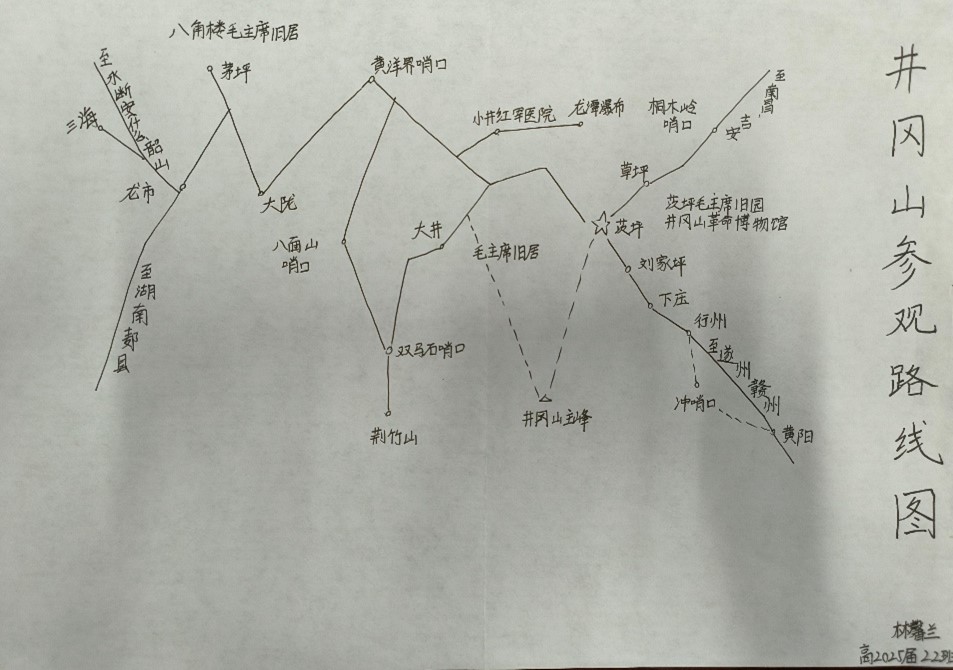 井冈山参观路线图
八角楼毛主席旧居
茅坪
黄洋界哨口
至
韶山
三海
龙市
大陇
小井红军医院
龙潭瀑布
桐木岭
哨口
至南昌
吉安
草坪
茨坪毛主席旧园
井冈山革命博物馆
茨坪
大井
毛主席旧居
八面山
哨口
刘家坪
下庄
行州
至遂州
赣州
至湖南
县
双马石哨口
冲哨口
井冈山主峰
荆竹山
黄阳
林馨兰
高2025届22班